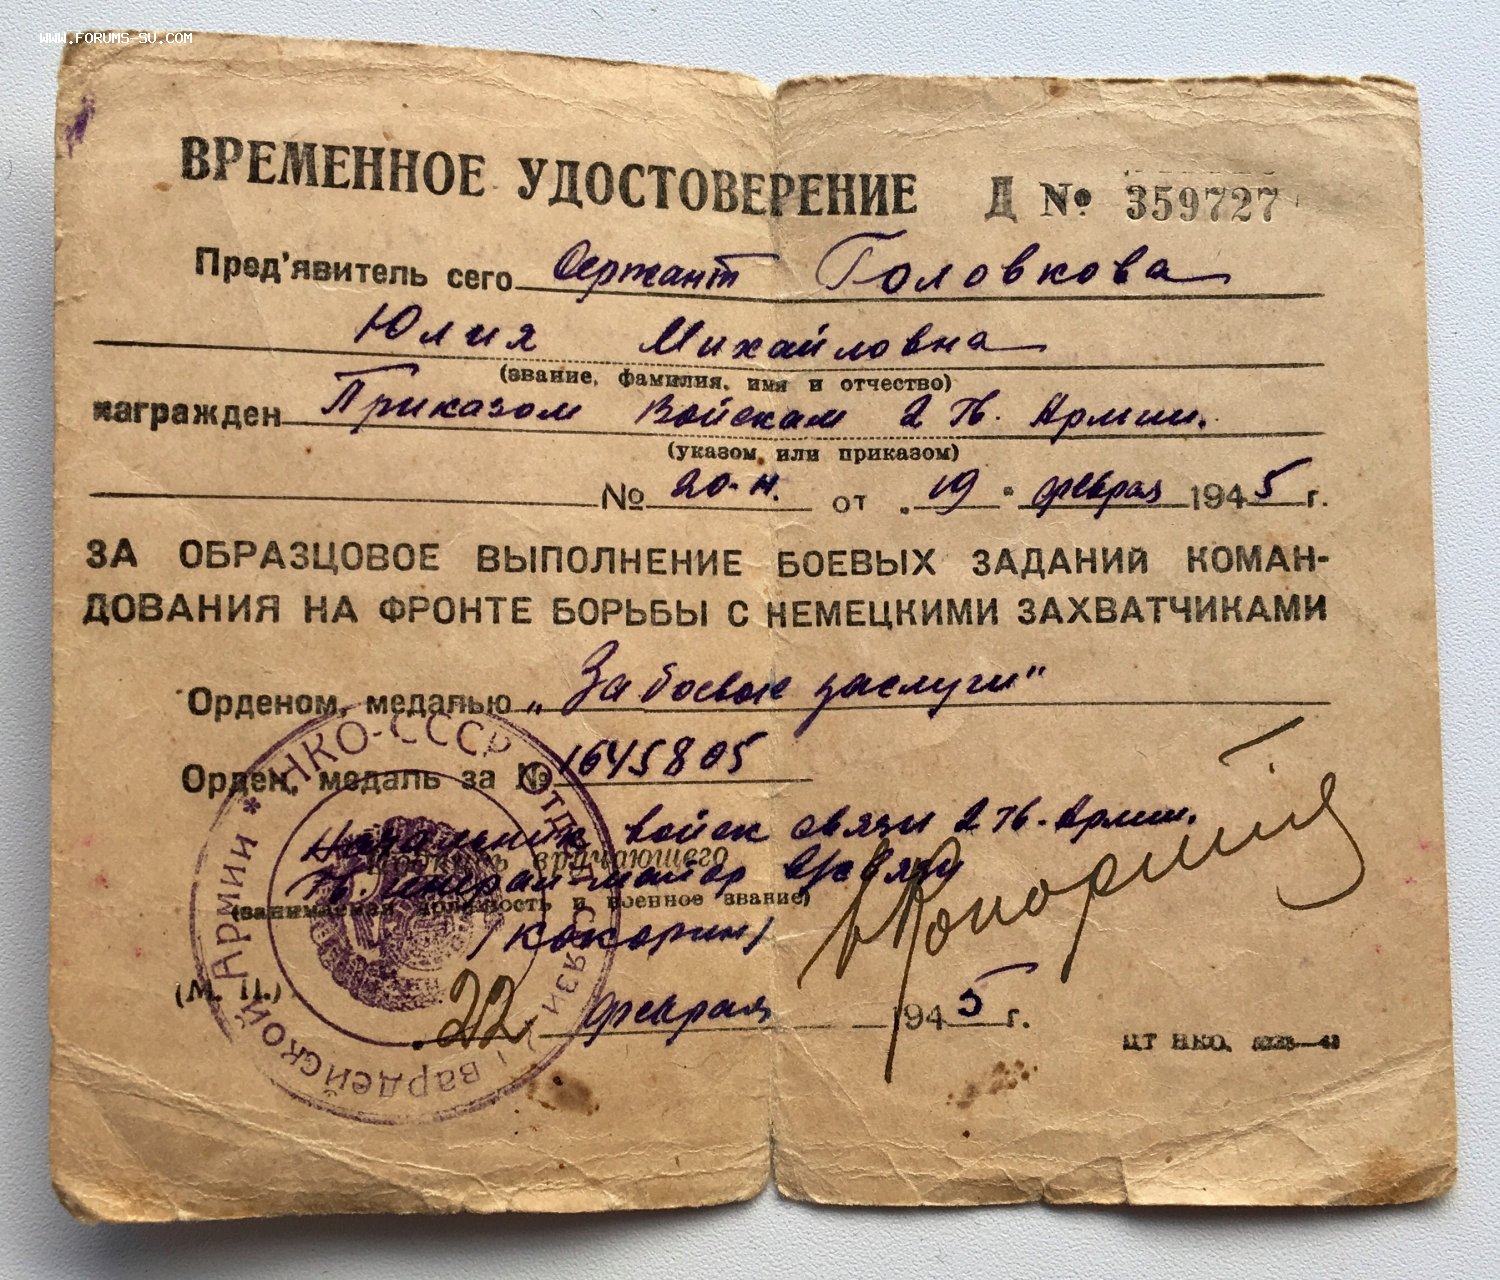 WWW.FORUMS-SU.COM
ВРЕМЕННОЕ УДОСТОВЕРЕНИЕ Д № 359727
Пред'явитель сего Сержант Головкова
Юлия Михайловна
(звание, фамилия, имя и отчество)
награжден Приказом Войскам 2 Гв. Армии.
(указом или приказом)
№ 20-н. от "19" февраля 1945 г.
ЗА ОБРАЗЦОВОЕ ВЫПОЛНЕНИЕ БОЕВЫХ ЗАДАНИЙ КОМАН-
ДОВАНИЯ НА ФРОНТЕ БОРЬБЫ С НЕМЕЦКИМИ ЗАХВАТЧИКАМИ
Орденом, медалью „За боевые заслуги"
Орден, медаль за № 1645805
Начальник войск связи 2 Гв. Армии.
вручающего
Гв. Генерал-майор в/связи
(занимаемая должность и военное звание)
/Кокорин/
(М. П.)
22 февраля 1945 г.
ЦТ НКО.
НКО-СССР Отд. Связи Гвардейской Армии *